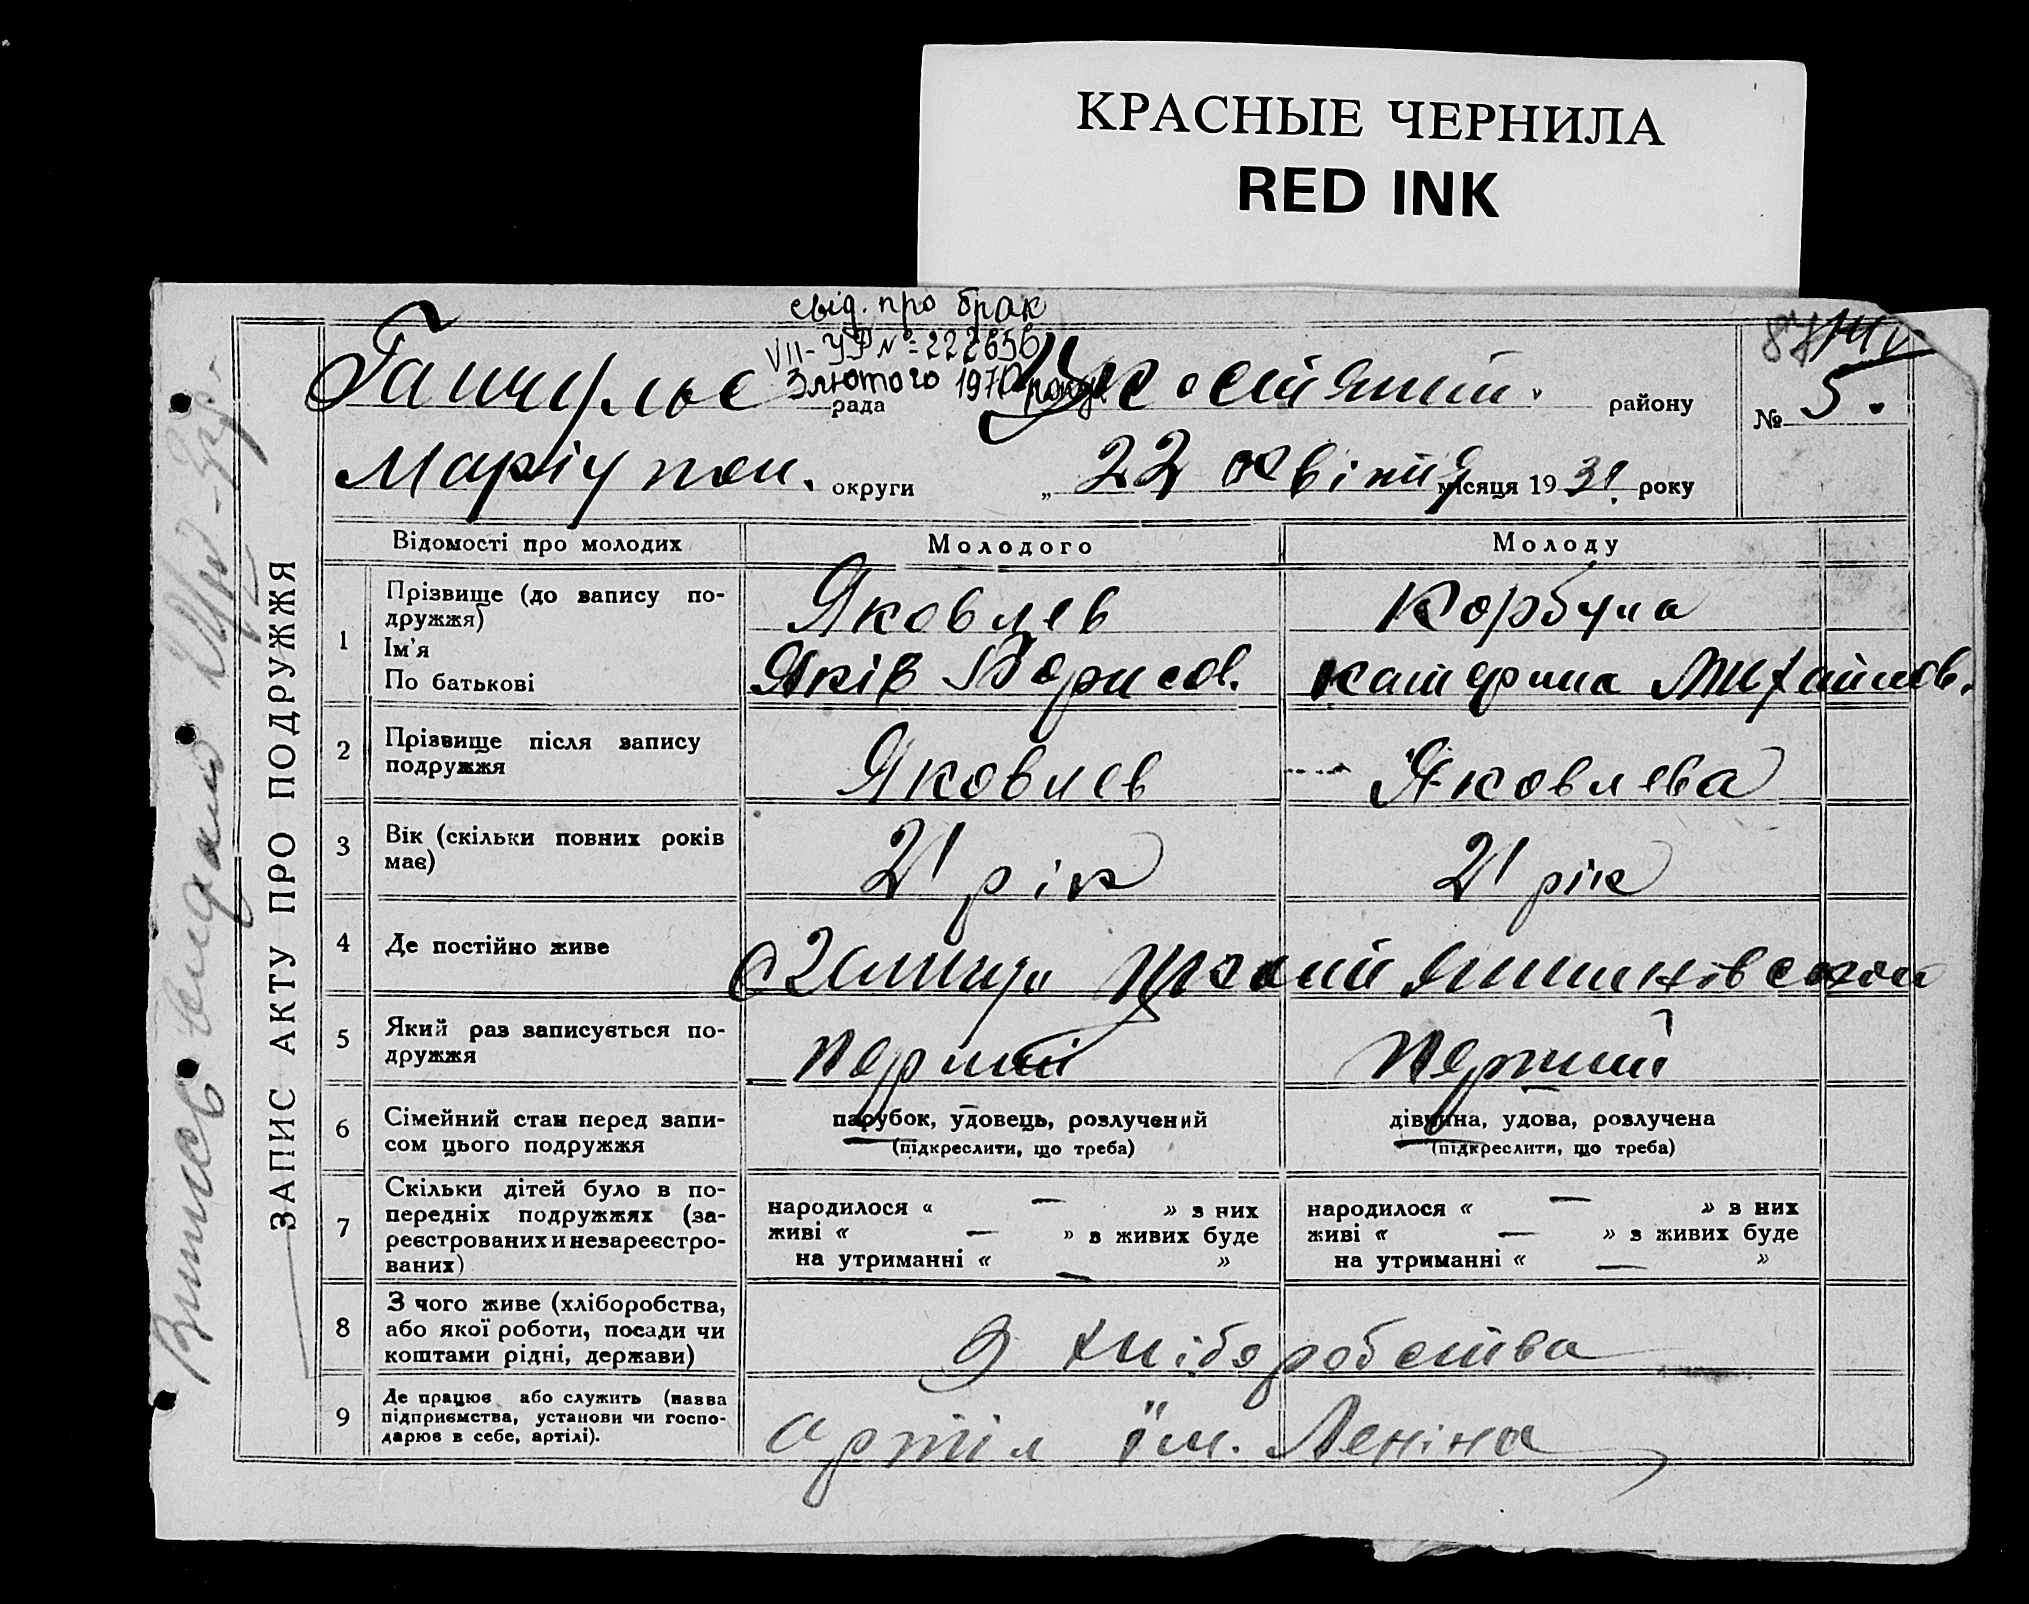 КРАСНЫЕ ЧЕРНИЛА
RED INK
свід. про брак
VII-УР №=222656
3 лютого 1970 року
рада району
№ 5.
Маріупол. округи „22 квітня місяця 1931 року
ЗАПИС АКТУ ПРО ПОДРУЖЖЯ
Відомості про молодих Молодого Молоду
1 Прізвище (до запису по-
дружжя)
Ім'я
По батькові
Яковлев
Яків Борисов.
Корбула
Катерина Михайлов.
2 Прізвище після запису
подружжя
Яковлев Яковлева
3 Вік (скільки повних років
має)
21 рік 21 рік
4 Де постійно живе
5 Який раз записується по-
дружжя
перший перший
6 Сімейний стан перед запи-
сом цього подружжя
парубок, удовець, розлучений
(підкреслити, що треба)
дівчина, удова, розлучена
(підкреслити, що треба)
7 Скільки дітей було в по-
передніх подружжях (за-
реєстрованих и незареєстро-
ваних)
народилося « — » з них
живі « — » в живих буде
на утриманні « — »
народилося « — » в них
живі « — » з живих буде
на утриманні « — »
8 З чого живе (хліборобства,
або якої роботи, посади чи
коштами рідні, держави)
З хліборобства
9 Де працює або служить (назва
підприємства, установи чи госпо-
дарює в себе, артілі).
артіл їм. Леніна